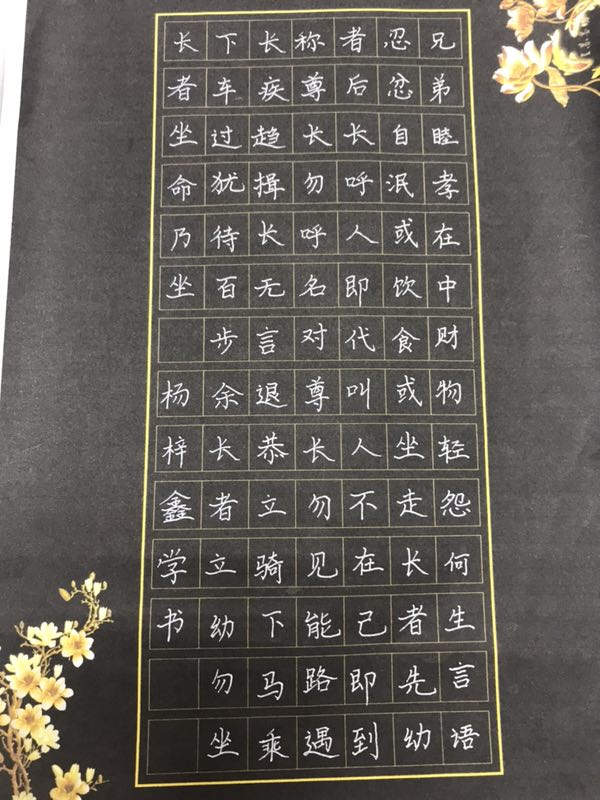 兄弟睦孝在中财物轻怨何生言语
忍忿自泯或饮食或坐走长者先幼
者后长呼人即代叫人不在己即到
称尊长勿呼名对尊长勿见能路遇
长疾趋揖长无言退恭立骑下马乘
下车过犹待百步余长者立幼勿坐
长者坐命乃坐 杨梓鑫学书